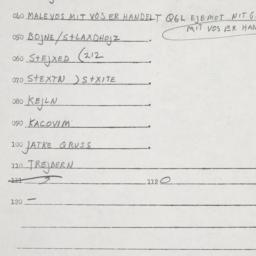 040 MALE VOS MIT VOS ER HANDELT QGL EJEMOT NIT G
MIT VOS ER HAN
050 BOJNE/StLAXDHOJZ
060 StEJXED (212
070 StEXTN ) StXITE
080 KEJLN
090 KACOVIM
100 JATKE QRUSS
110 TREJDERN
111 112 O
120 —